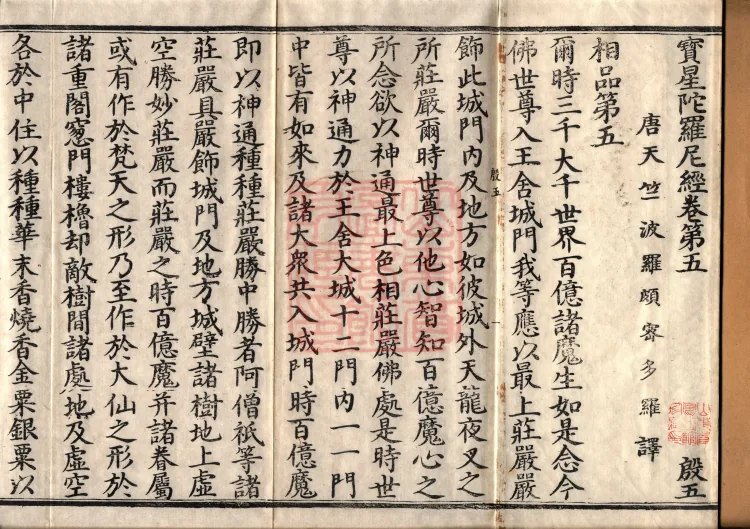 寶星陀羅尼經卷第五 殷五
唐天竺波羅頗蜜多羅譯
相品第五
爾時三千大千世界百億諸魔生如是念今
佛世尊入王舍城門我等應以最上莊嚴嚴
殷五
一
飾此城門內及地方如彼城外天龍夜叉之
所莊嚴爾時世尊以他心智知百億魔心之
所念欲以神通最上色相莊嚴佛處是時世
尊以神通力於王舍大城十二門內一一門
中皆有如來及諸大衆共入城門時百億魔
即以神通種種莊嚴勝中勝者阿僧祇等諸
莊嚴具嚴飾城門及地方城壁諸樹地上虛
空勝妙莊嚴而莊嚴之時百億魔并諸眷屬
或有作於梵天之形乃至作於大仙之形於
諸重閣窓門樓櫓却敵樹間諸處地及虛空
各於中住以種種華末香燒香金粟銀粟以